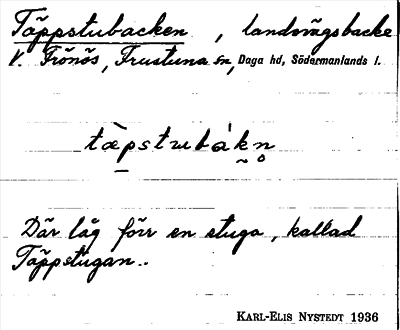 Täppstubacken, landsvägsbacke
V. Frönös, Frustuna sn, Daga hd, Södermanlands l.
tàpstubákn̥
Där låg förr en stuga, kallad
Täppstugan..
KARL-ELIS NYSTEDT 1936